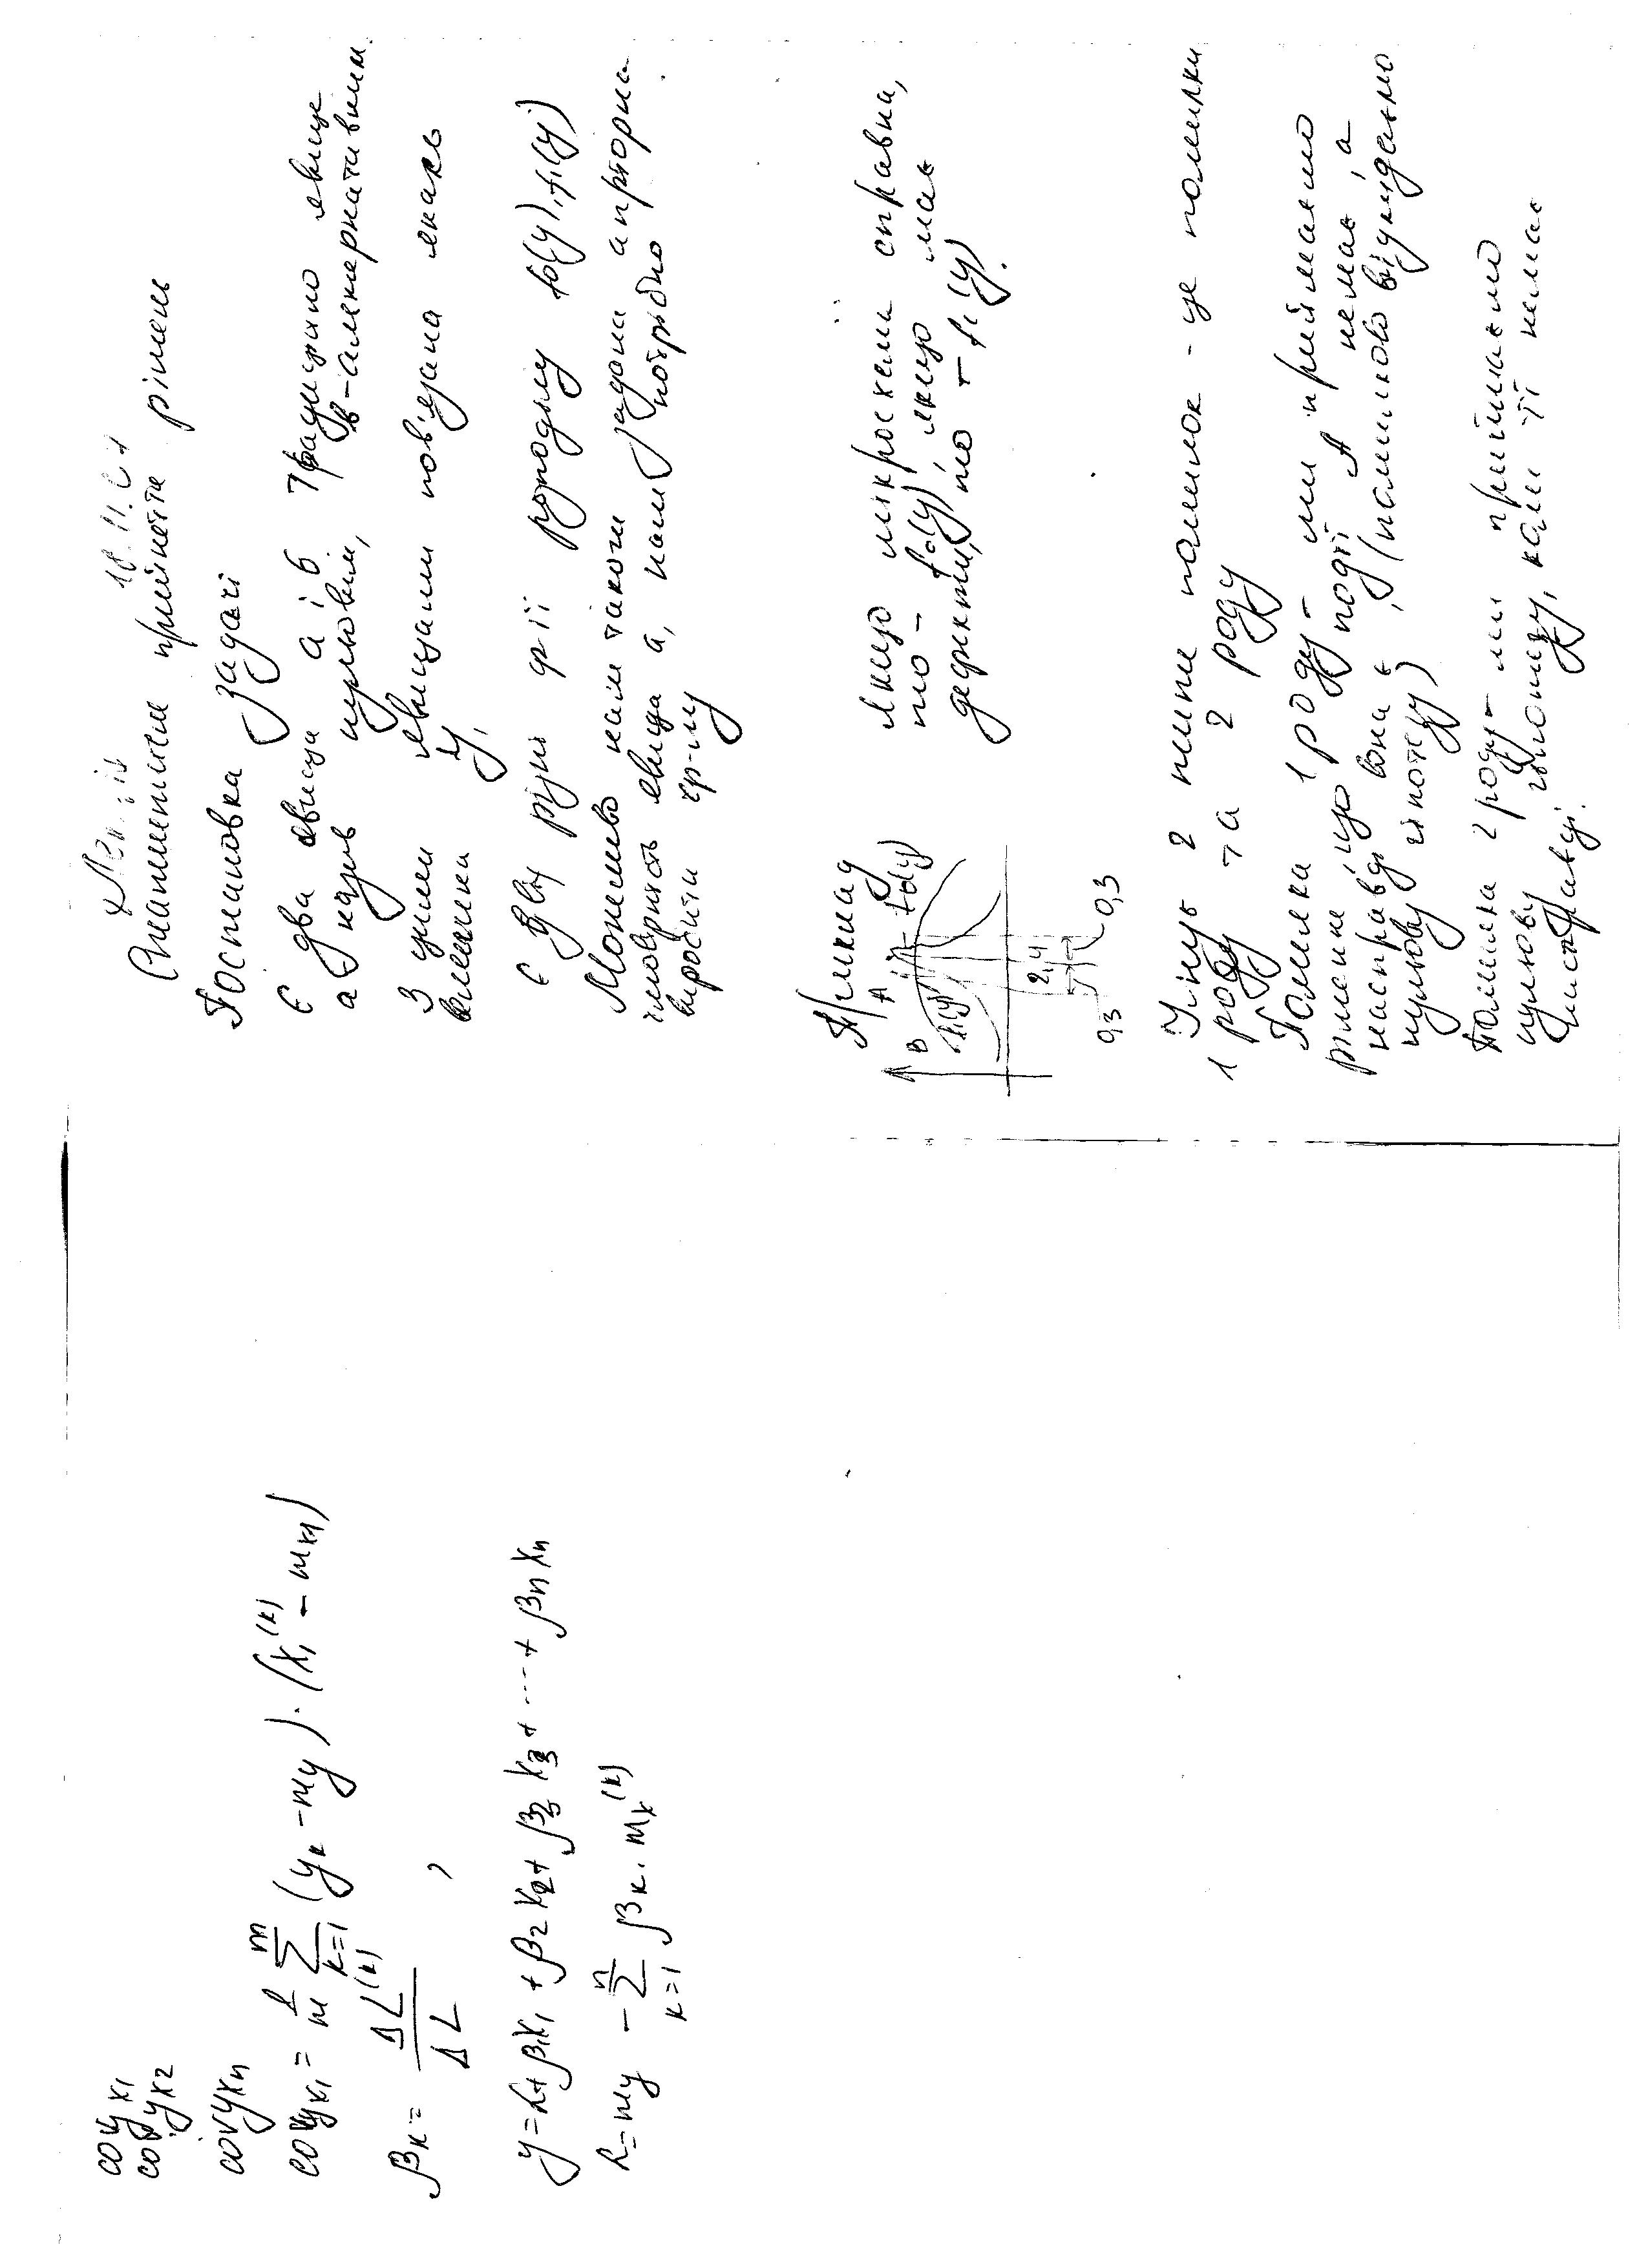 cov yx1
cov yx2
cov yxn
cov yx1 = 1/m ∑ k=1 m (yк - my) · (x1^(к) - mx1)
βк = ΔL^(к) / ΔL ,
y = α + β1x1 + β2x2 + β3x3 + ... + βnxn
α = my - ∑ к=1 n βк · mx^(к)
18.11.01
Статистичні прийняття рішень
Постановка задачі
Є два явища а і б Традиційно явище
а назив нульовим, в-альтернативним.
З цими явищами пов'язана якась
величина y,
Є різні ф-ії розподілу fo(y), f1(y)
Можливо нам також задана апріорна
імовірність явища а, нам потрібно
виробити
Приклад
B A
f1(y) fo(y)
2,4
0,3 0,3
Якщо мікросхема справна,
то - fo(y), якщо має
дефекти, то - f1(y).
Існує 2 типи помилок - це помилки
1 роду та 2 роду
Помилка 1 роду - ми приймаємо
рішення, що події А немає, а
насправді вона є, (помилково відкидаємо
нульову гіпотезу)
Помилка 2 роду - ми приймаємо
нульову гіпотезу, коли її немає
насправді.